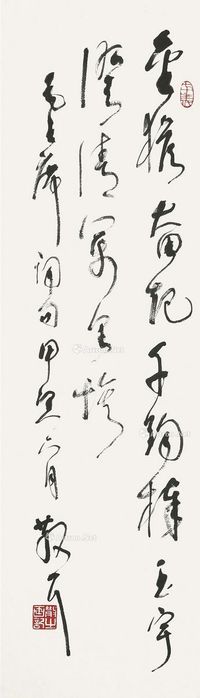 金猴奋起千钧棒玉宇
澄清万里埃
毛主席词句甲寅六月
散耳